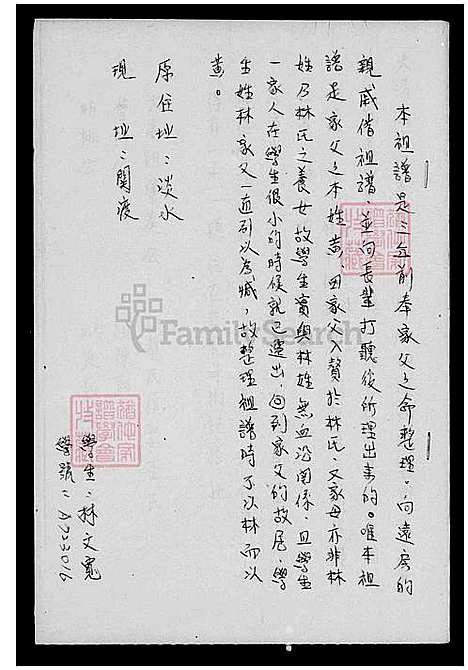 本祖譜是三年前奉家父之命整理。向遠房的
親戚借祖譜、並向長輩打聽後所理出來的。唯本祖
譜是家父之本姓黃，因家父入贅於林氏，又家母亦非林
姓乃林氏之養女故學生實與林姓無血沿關係，且學生
一家人在學生很小的時候就已遷出，回到家父的故居，學
生姓林家父一直引以為憾，故整理祖譜時不以林而以
黃。
原住址：淡水
現　址：關渡
學生：林文寬
學號：A723016
FamilySearch